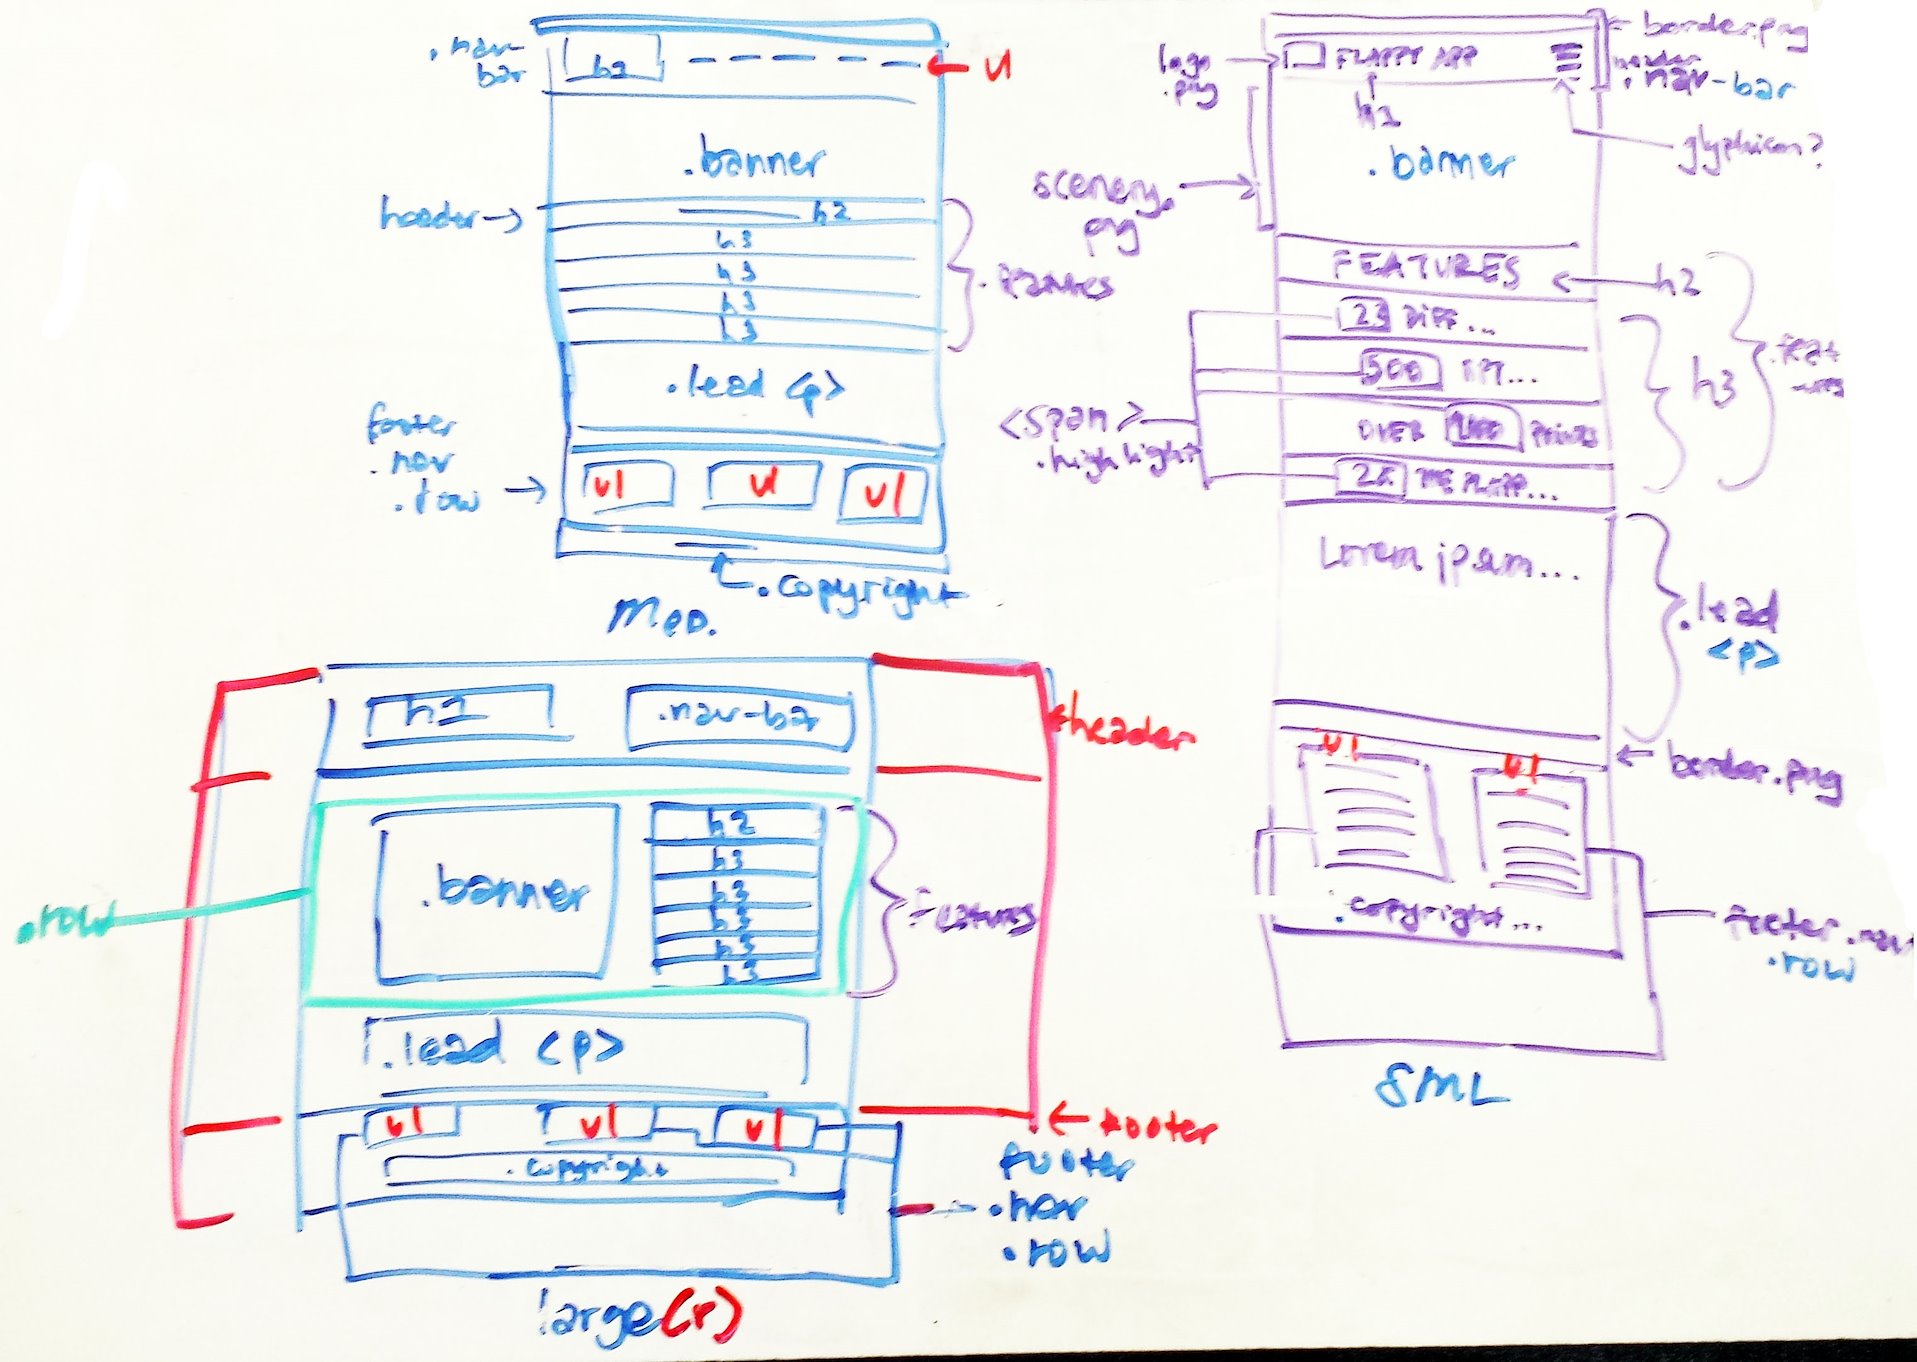 .nav-
bar
h1
ul
.banner
header
h2
h3
h3
h3
h3
.lead <p>
footer
.nav
.row
ul
ul
ul
.copyright
MED.
border.png
logo
.png
FLAPPY APP
header
.nav-bar
h1
glyphicon?
.banner
scenery.
png
FEATURES
h2
23 DIFF...
500
OVER
<span>
.highlight
h3
.feat
-ures
Lorem ipsum...
.lead
<p>
border.png
ul
ul
.copyright...
footer.nav
.row
SML
h1
.nav-bar
header
.banner
h2
h3
h3
h3
h3
h3
features
.row
.lead <p>
ul
ul
ul
footer
.copyright
footer
.nav
.row
large(r)